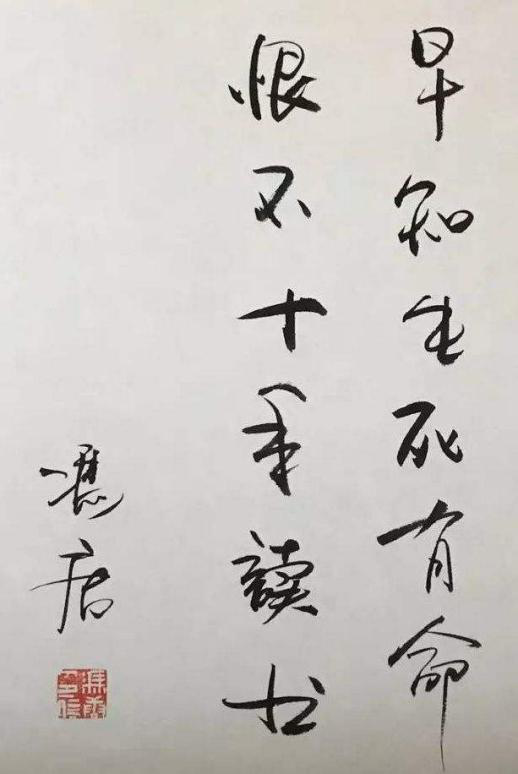 早知生死有命
恨不十年讀书
憑居